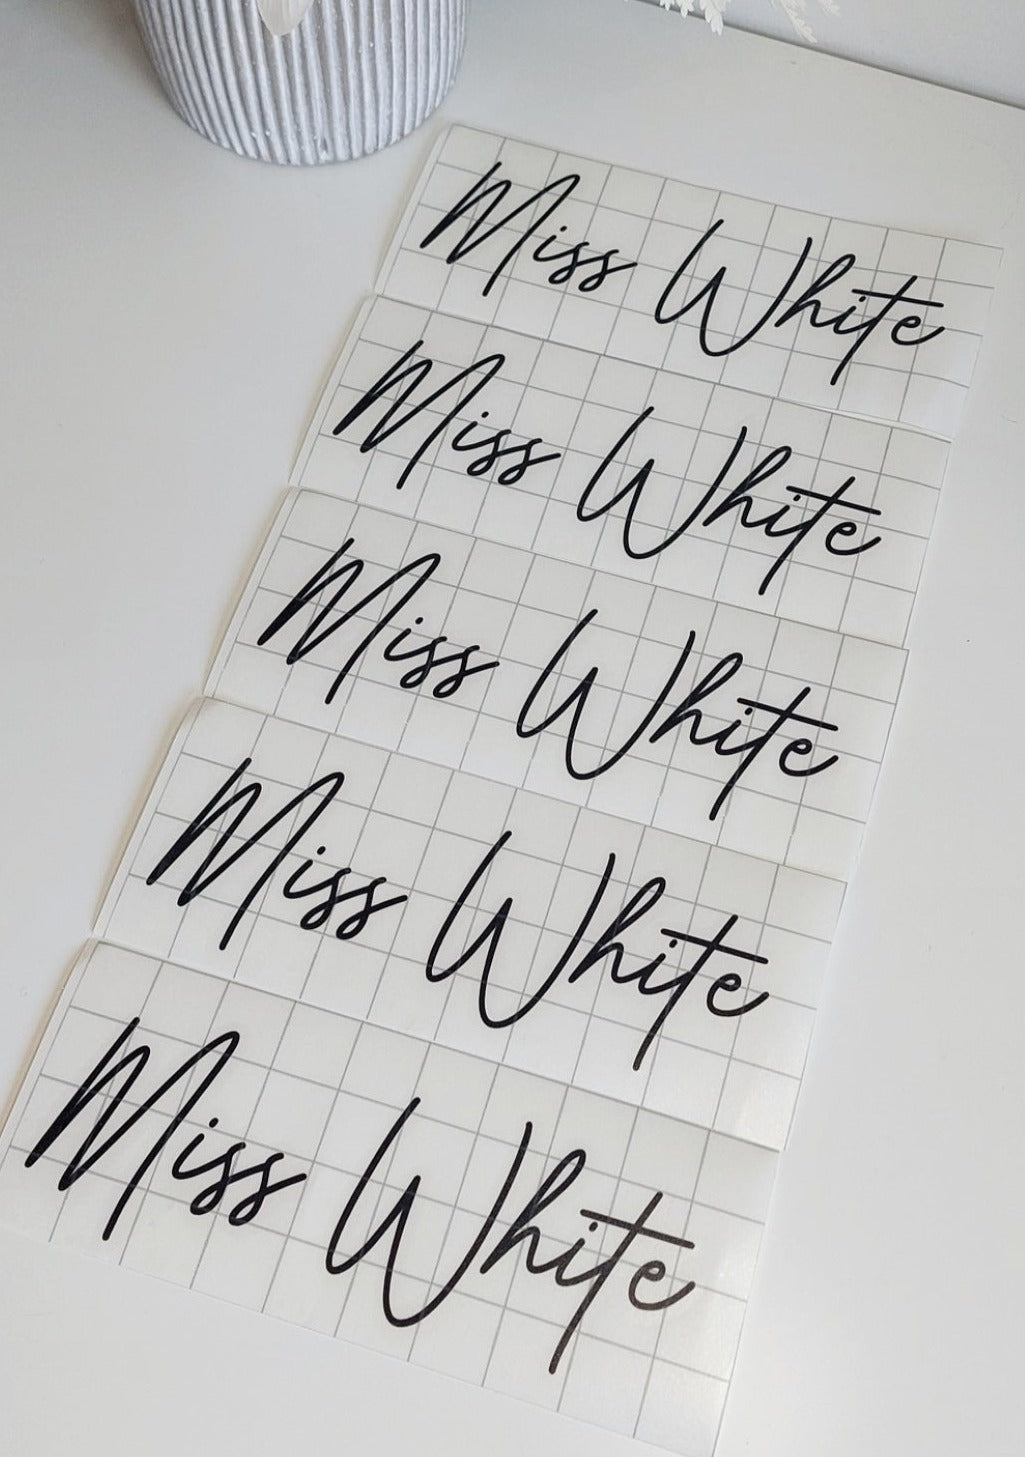 Miss White
Miss White
Miss White
Miss White
Miss White